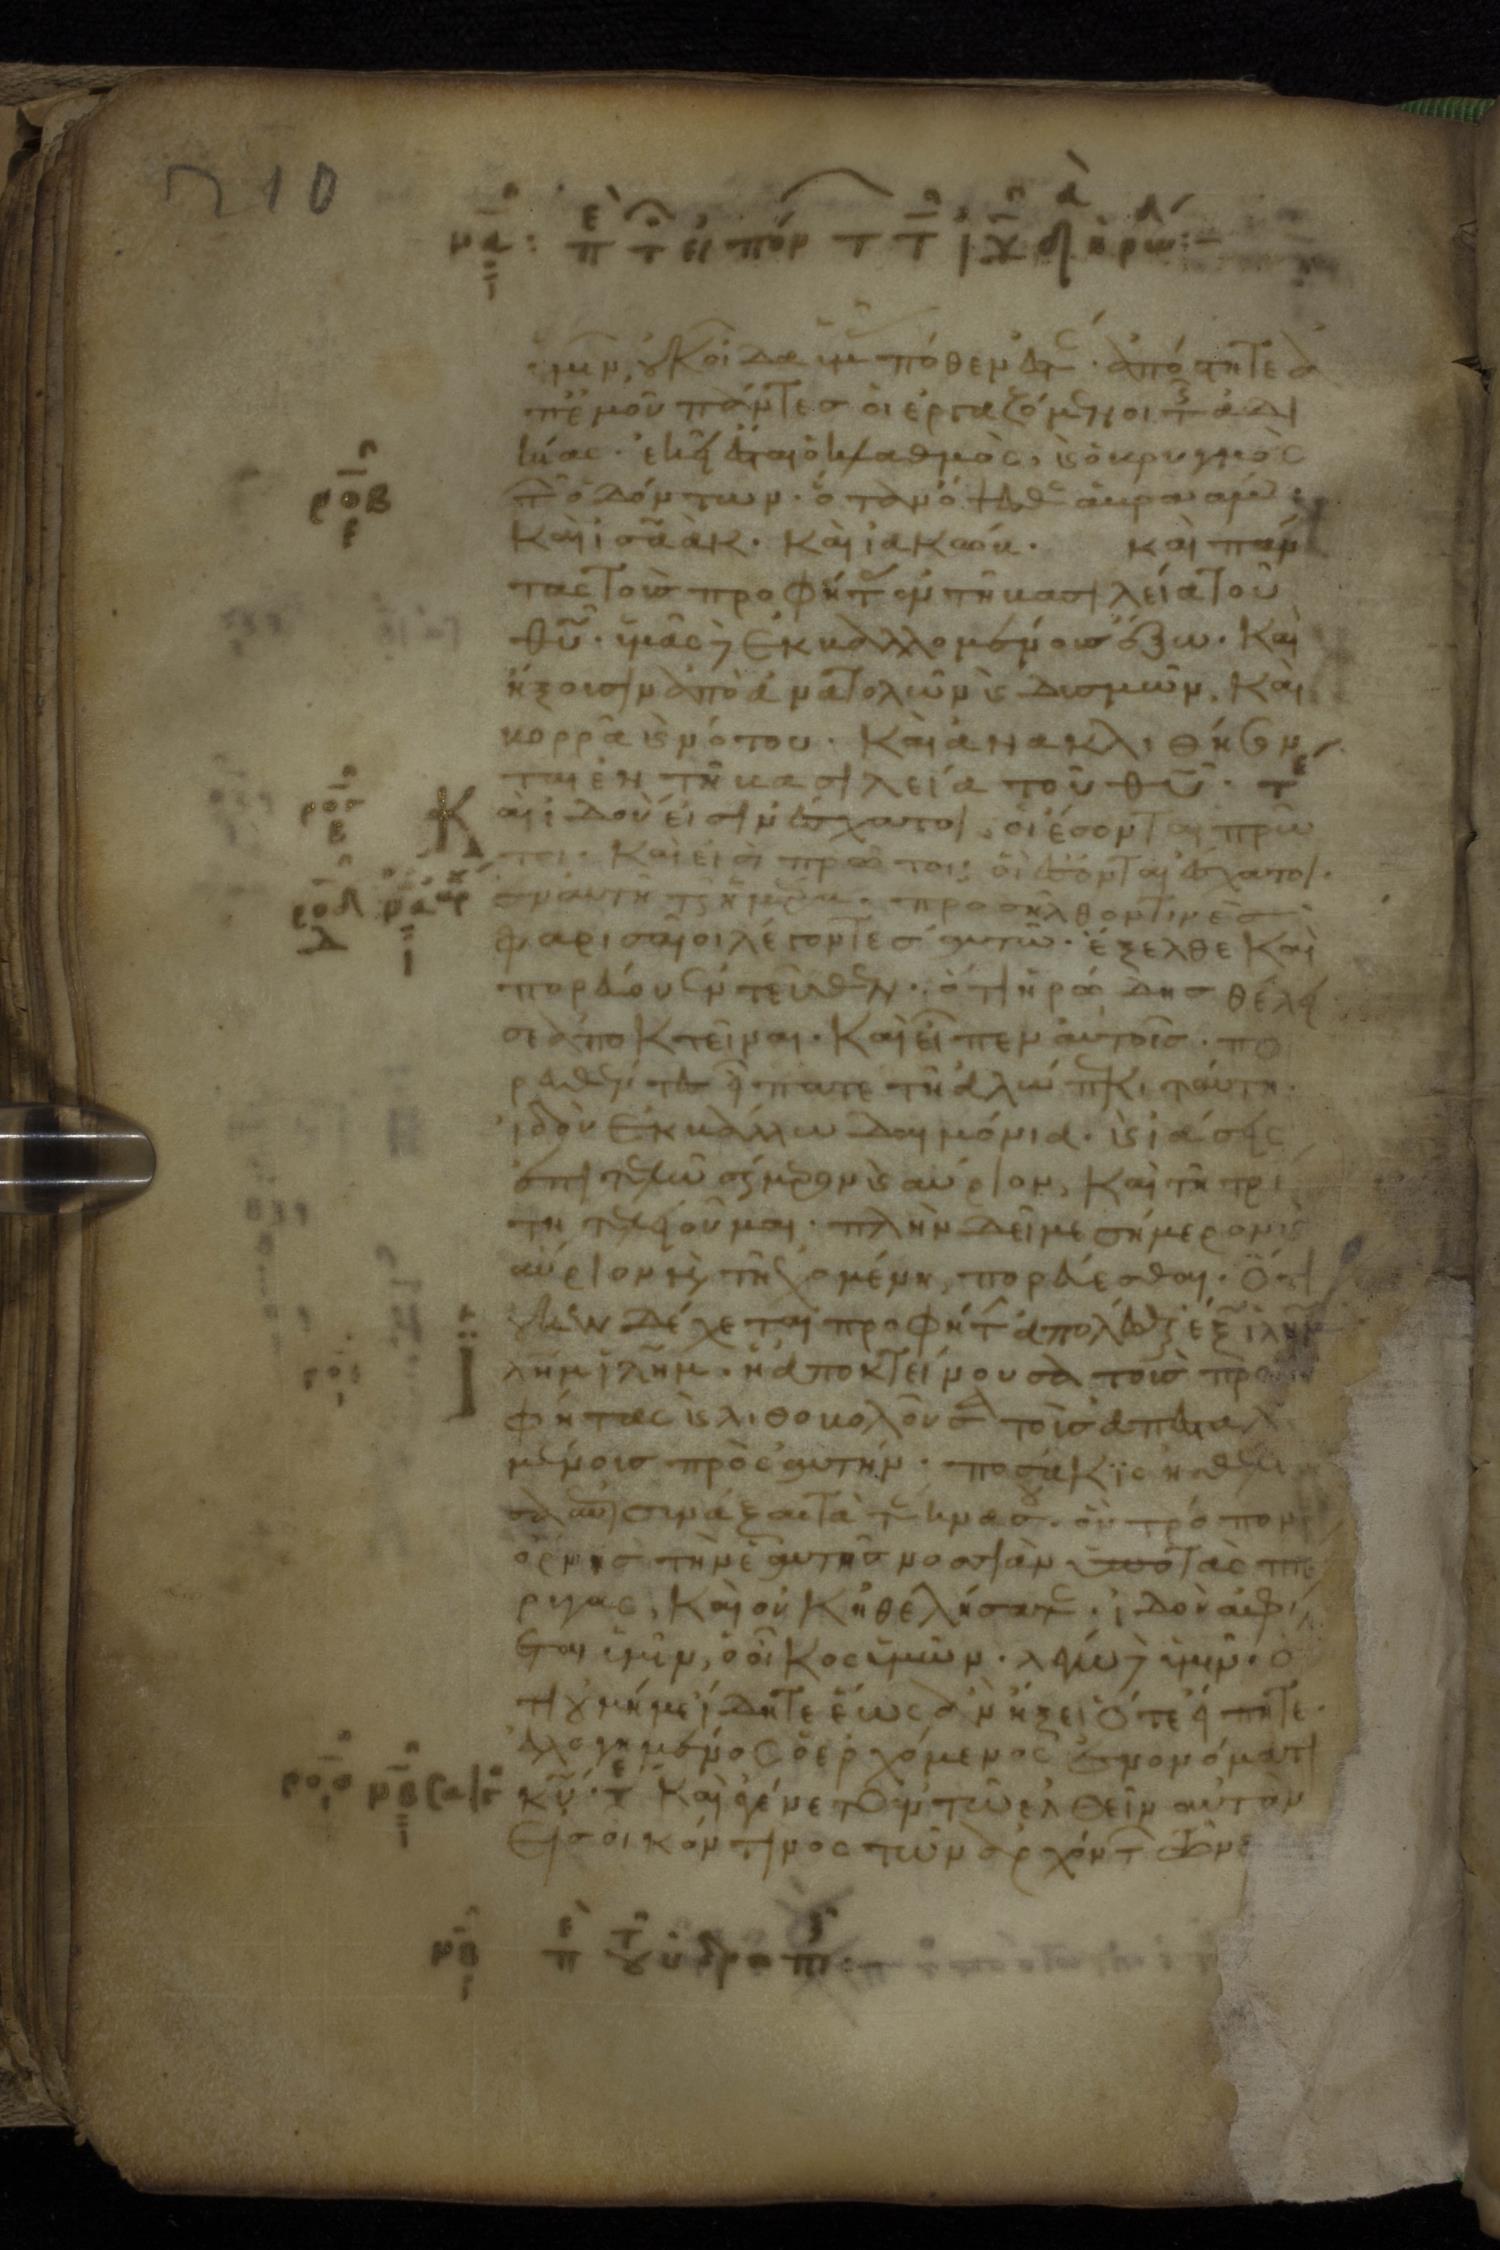 ὑμῖν, οὐκ οἶδα ὑμᾶς πόθεν ἐστέ · ἀπόστητε ἀ
π ἐμοῦ πάντες οἱ ἐργαζόμενοι τῆς ἀδι
κίας · ἐκεῖ ἔσται ὁ κλαθμὸς, καὶ ὁ βρυγμὸς
τῶν ὀδόντων · ὅταν ὄψεσθε ἀβραὰμ ·
καὶ ἰσαὰκ · καὶ ἰακώβ · καὶ πάν
τας τοὺς προφήτας ἐν τῆ βασιλεία τοῦ
θῦ · ὑμᾶς δὲ ἐκβαλλομένους ἔξω · καὶ
ἥξουσιν ἀπὸ ἀνατολῶν καὶ δυσμῶν, καὶ
βορρᾶ καὶ νότου · καὶ ἀνακλιθήσον
ται ἐν τῆ βασιλεία τοῦ θῦ · τε
Καὶ ἰδοὺ εἰσὶν ἔσχατοι, οἳ ἔσονται πρῶ
τοι · καὶ εἰσὶ πρῶτοι, οἳ ἔσονται ἔσχατοι ·
ἐν αὐτῆ τῆ ἡμέρα · προσῆλθον τινὲς
φαρισαῖοι λέγοντες αὐτῶ · ἔξελθε καὶ
πορεύου ἐντεῦθεν · ὅτι ἡρώδης θέλει
σε ἀποκτεῖναι · καὶ εἶπεν αὐτοῖς · πο
ρευθέντες εἴπατε τῆ ἀλώπεκι ταύτη ·
ἰδοὺ ἐκβάλλω δαιμόνια · καὶ ἰάσεις
ἐπιτελῶ σήμερον καὶ αὔριον, καὶ τῆ τρί
τη τελειοῦμαι · πλὴν δεῖ με σήμερον καὶ
αὔριον καὶ τῆ ἐχομένη, πορεύεσθαι · ὅτι
οὐκ ἐνδέχεται προφήτην ἀπολέσθαι ἔξω ἱλημ
ἱλὴμ ἱλὴμ · ἡ ἀποκτείνουσα τοὺς προ
φήτας καὶ λιθοβολοῦσα τοὺς ἀπεσταλ
μένους πρὸς αὐτήν · ποσάκις ἠθέλη
σα ἐπισυνάξαι τὰ τέκνα σου · ὃν τρόπον
ὄρνις τὴν ἑαυτῆς νοσσιὰν ὑπὸ τὰς πτέ
ρυγας, καὶ οὐκ ἠθελήσατε · ἰδοὺ ἀφί
εται ὑμῖν, ὁ οἶκος ὑμῶν · λέγω δὲ ὑμῖν · ὅ
τι οὐ μή με ἴδητε ἕως ἂν ἥξει ὅτε εἴπητε ·
εὐλογημένος ὁ ἐρχόμενος ἐν ὀνόματι
κῦ · τε Καὶ ἐγένετο ἐν τῶ ἐλθεῖν αὐτὸν
εἰς οἶκόν τινος τῶν ἀρχόντων